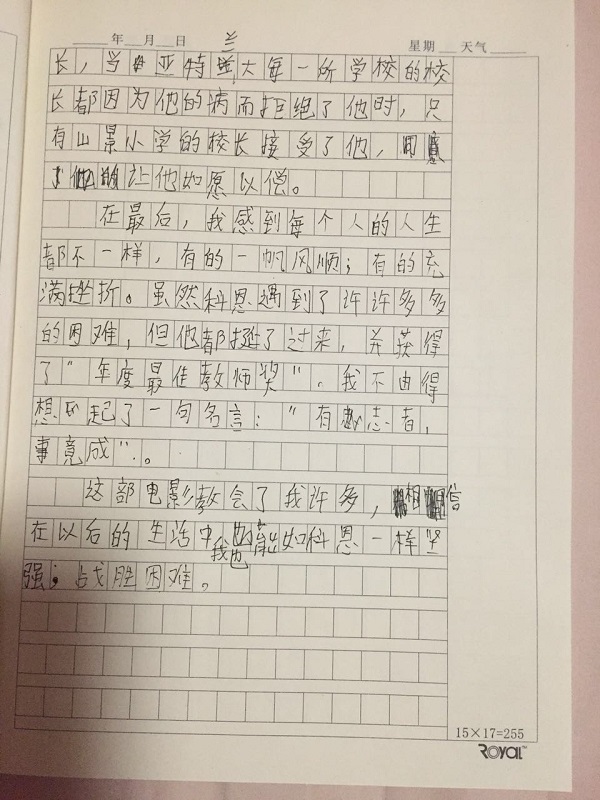 年 月 日 星期 天气
兰
长，当亚特大每一所学校的校
长都因为他的病而拒绝了他时，只
有山景小学的校长接受了他，
让他如愿以偿。
在最后，我感到每个人的人生
都不一样，有的一帆风顺；有的充
满挫折。虽然科恩遇到了许许多多
的困难，但他都挺了过来，并获得
了“年度最佳教师奖”。我不由得
想起了一句名言：“有志者，
事竟成”。
这部电影教会了我许多，相信
在以后的生活中我也能如科恩一样坚
强；战胜困难。
15×17=255
ROYAL